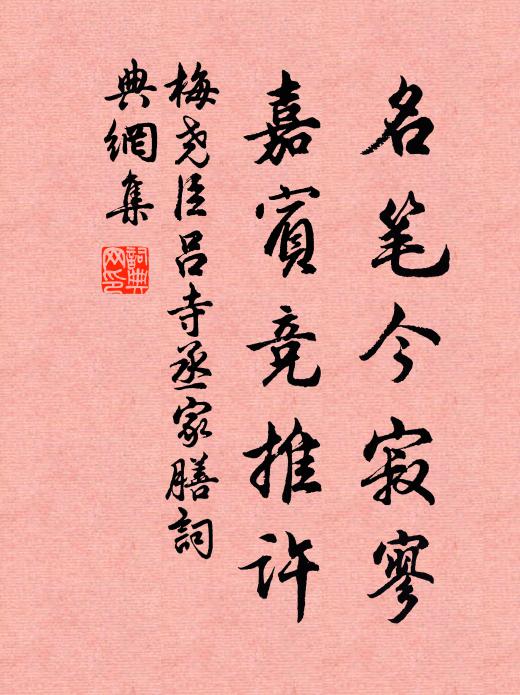 名笔今寂寥
嘉賓竞推许
梅尧臣吕寺丞家膳詞
典網集
詞典
网印